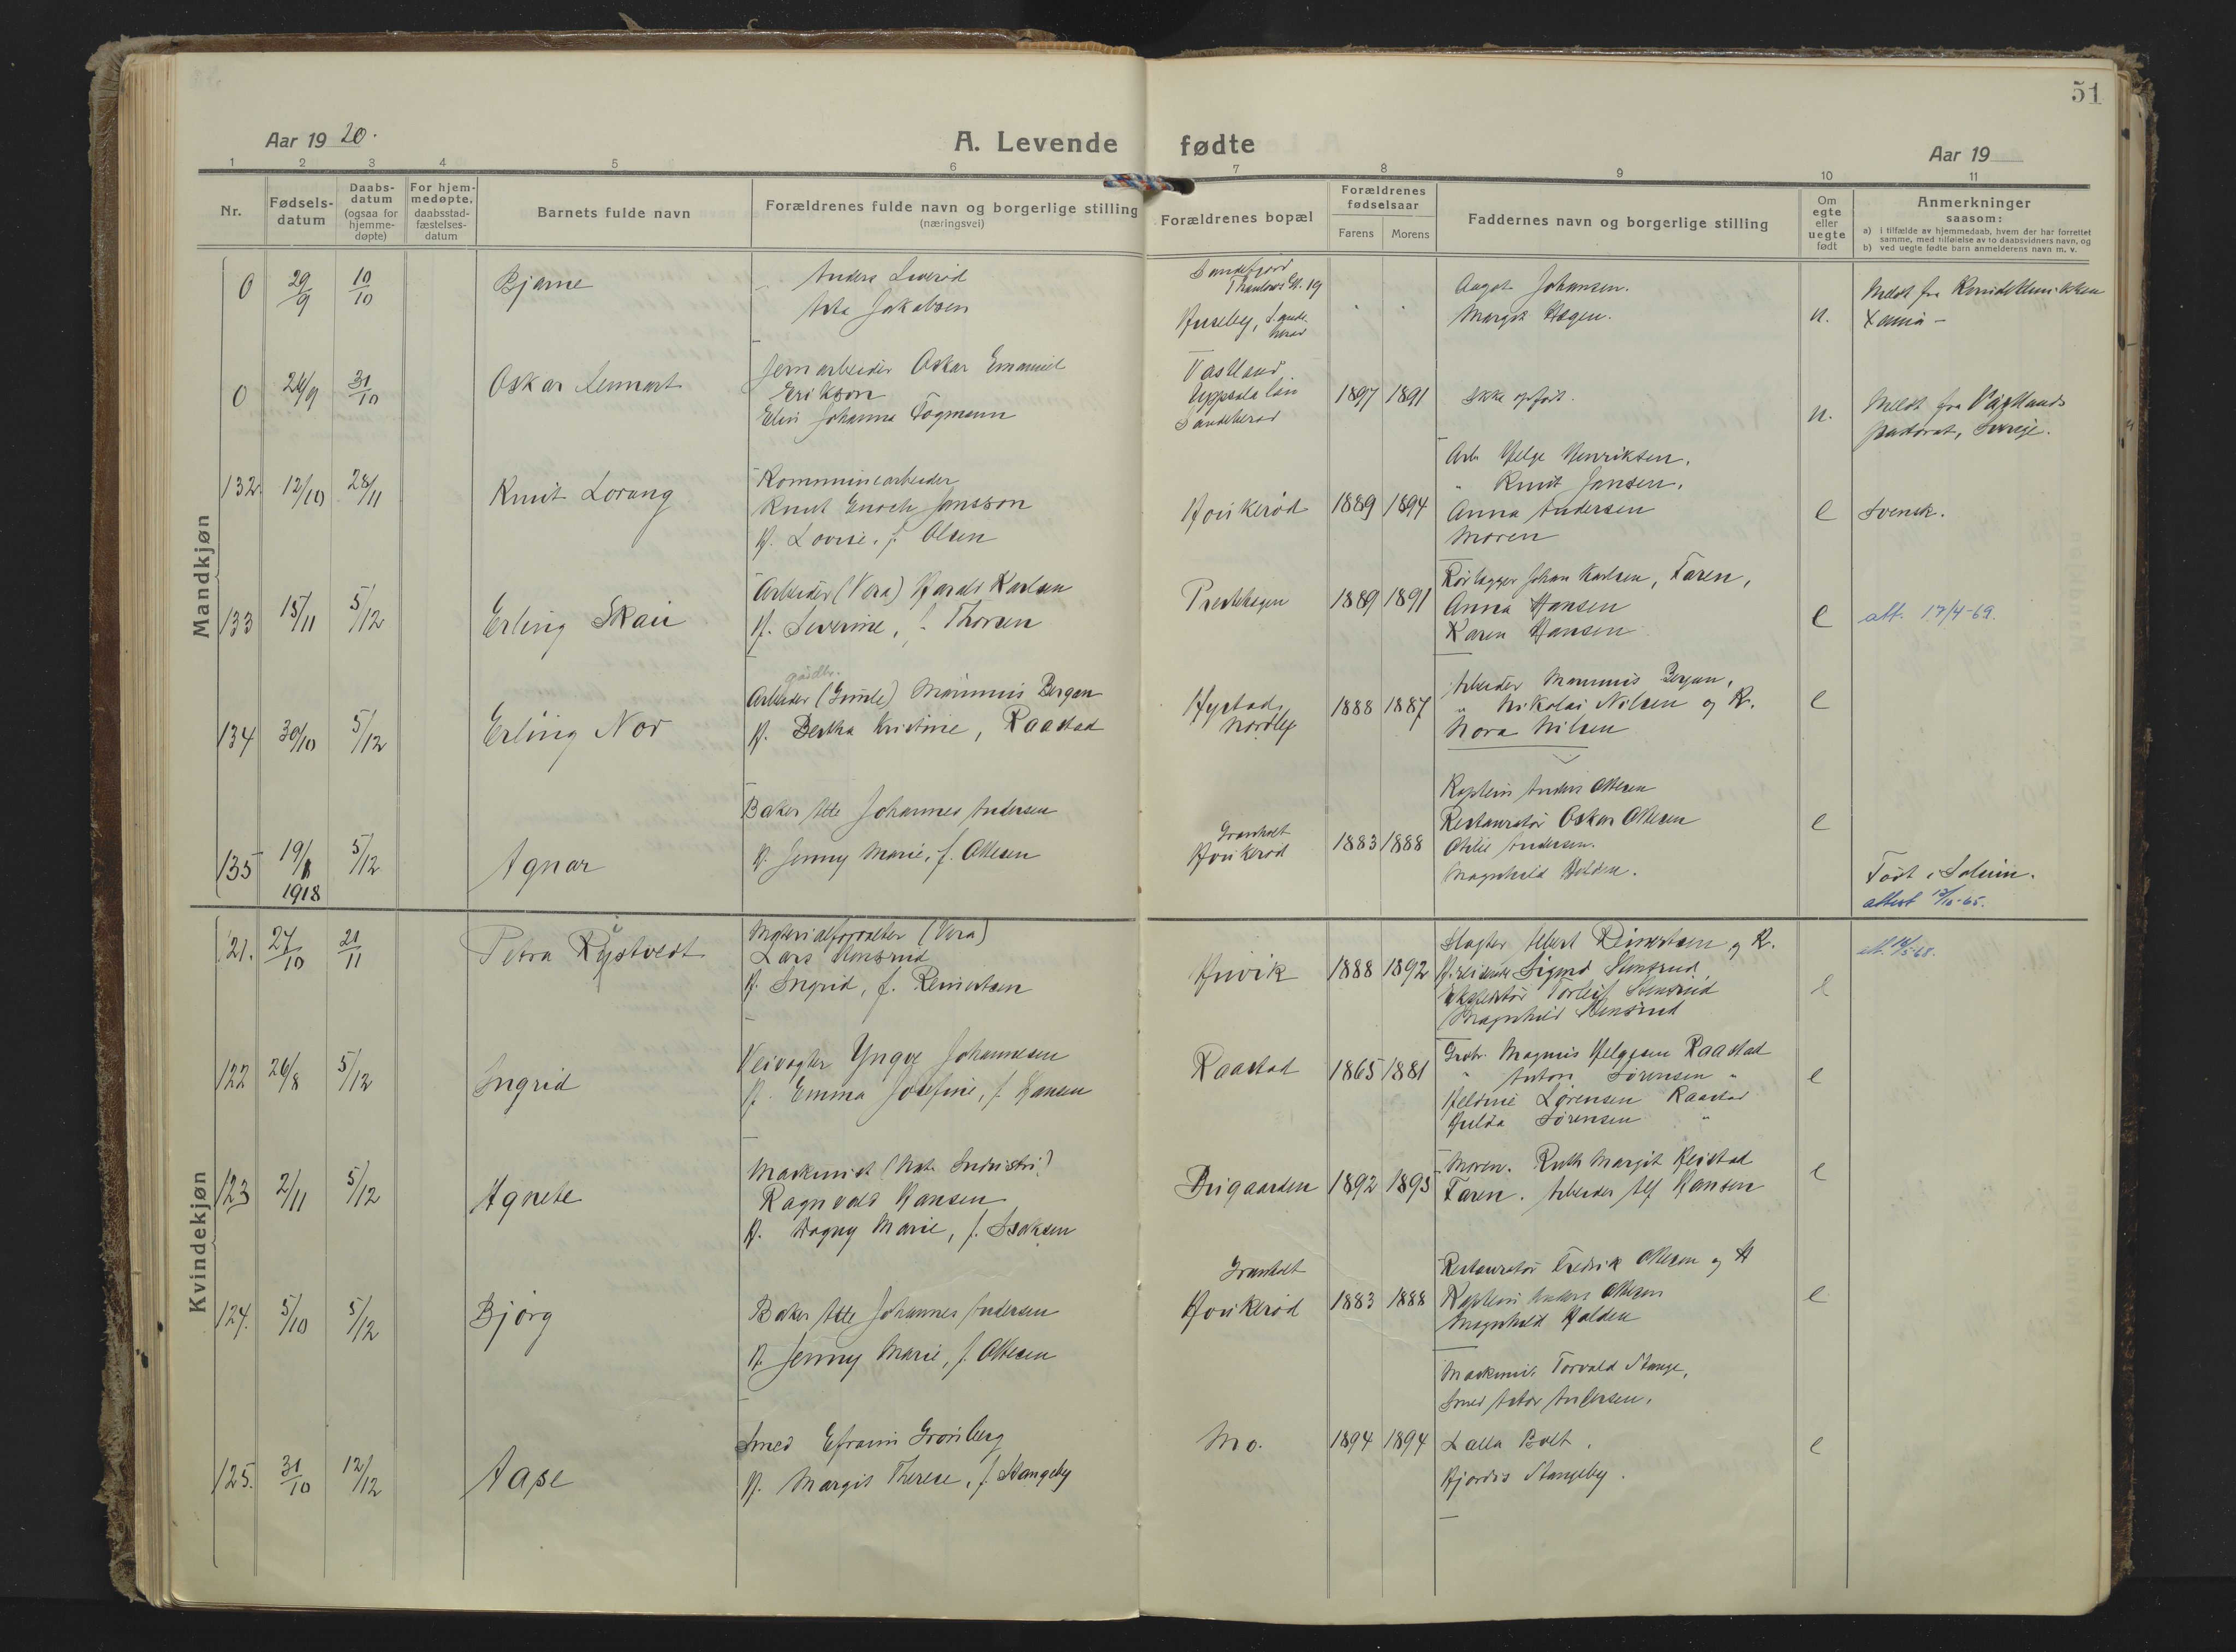 51
Aar 19 20.
A. Levende fødte
Aar 19
1 2 3 4 5 6 7 8 9 10 11
Nr.
Fødsels-
datum
Daabs-
datum
(ogsaa for
hjemme-
døpte)
For hjem-
medøpte.
daabsstad-
fæstelses-
datum
Barnets fulde navn
Forældrenes fulde navn og borgerlige stilling
(næringsvei)
Forældrenes bopæl
Forældrenes
fødselsaar
Farens Morens
Faddernes navn og borgerlige stilling
Om
egte
eller
uegte
født
Anmerkninger
saasom:
a) i tilfælde av hjemmedaab, hvem der har forrettet
samme, med tilføielse av to daabsvidners navn, og
b) ved uegte fødte barn anmelderens navn m. v.
Mandkjøn
0 29/9 10/10 Bjarne
Anders Liverød
Asta Jakobsen
Sandefjord
Thaulows Gt. 19
Huseby, Sande-
herad
Aagot Johansen.
Margit Hagen.
u.
Meldt fra Kvindeklinikken
Xania -
0 24/9 31/10 Oskar Lennart
Jernarbeider Oskar Emanuel
Erikson
Elin Johanna Fogmann
Vastland
Uppsala län
Sandeherad
1897 1891
Ikke opført.
u.
Meldt fra Västlands
pastorat, Sverige.
132. 12/10 28/11 Knut Lorang
Kommunearbeider
Knut Enoch Jansson
H. Lovise, f. Olsen
Hovikerød
1889 1894
Arb. Helge Henriksen.
" Knut Jansen.
Anna Andersen
Moren
e
Svensk.
133 15/11 5/12 Erling Skau
Arbeider (Vera) Harald Karlsen
H. Severine, f. Thorsen
Prestehagen
1889 1891
Rørlægger Johan Karlsen, Faren,
Anna Hansen
Karen Hansen
e
att. 17/4-69.
134 30/10 5/12 Erling Nor
gårdbr.
Arbeider (Gimle) Magnus Bergan
H. Bertha Kristine, Raastad
Hystad,
Nordby
1888 1887
Arbeider Magnus Bergan,
" Nikolai Nilsen og K.
Nora Nilsen
e
135 19/8 1918 5/12 Agnar
Baker Atle Johannes Andersen
H. Jenny Marie, f. Ottesen
Granholt
Hovikerød
1883 1888
Kaptein Anders Ottesen
Restauratør Oskar Ottesen
Otilie Andersen.
Magnhild Holden.
e
Født i Solum.
attest 12/10-65.
Kvindekjøn
121. 27/10 21/11 Petra Rystvedt
Materialforvalter (Vera)
Lars Stensrud
H. Ingrid, f. Reinertsen
Huvik
1888 1892
Slagter Albert Reinertsen og K.
Sigurd Stensrud
Torleif Stensrud
Magnhild Stensrud
e
122 26/8 5/12 Ingrid
Veivogter Yngve Johannesen
H. Emma Josefine, f. Hansen
Raastad
1865 1881
Grdbr. Magnus Helgesen Raastad
" Anton Sørensen "
Heldine Sørensen Raastad
Hulda Sørensen "
e
123 2/11 5/12 Agnete
Maskinist (Nat. Industri)
Ragnvald Hansen
H. Dagny Marie, f. Isaksen
Brigaarden
1892 1895
Moren. Ruth Margit Reistad
Faren. Arbeider Alf Hansen
e
124. 5/10 5/12 Bjørg
Baker Atle Johannes Andersen
H. Jenny Marie, f. Ottesen
Granholt
Hovikerød
1883 1888
Restauratør Fredrik Ottesen og H
Kaptein Anders Ottesen
Magnhild Holden
e
125. 31/10 12/12 Aase
Smed Efraim Grønberg
H. Margit Therese, f. Stangeby
Mo.
1894 1894
Maskinist Torvald Stange,
Smed Anton Andersen,
Lalla Bolt.
Hjørdis Stangeby.
e